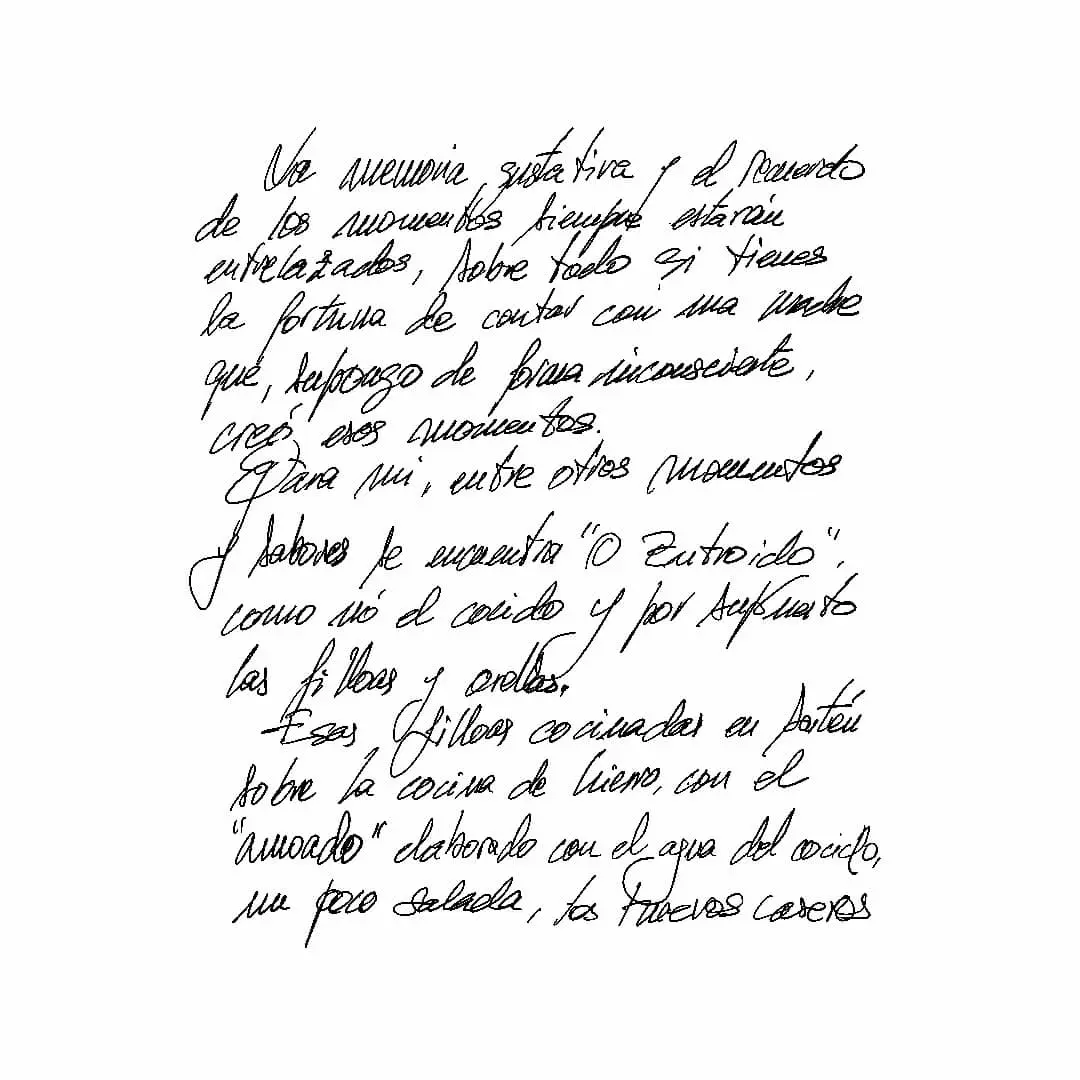 La memoria gustativa y el recuerdo
de los momentos siempre estarán
entrelazados, sobre todo si tienes
la fortuna de contar con una madre
que, supongo de forma inconsciente,
creó esos momentos.
Para mi, entre otros momentos
y sabores se encuentra "O Entroido",
como nó el cocido y por supuesto
las filloas y orellas.
Esas filloas cocinadas en sartén
sobre la cocina de hierro, con el
"amoado" elaborado con el agua del cocido,
un poco salada, los huevos caseros